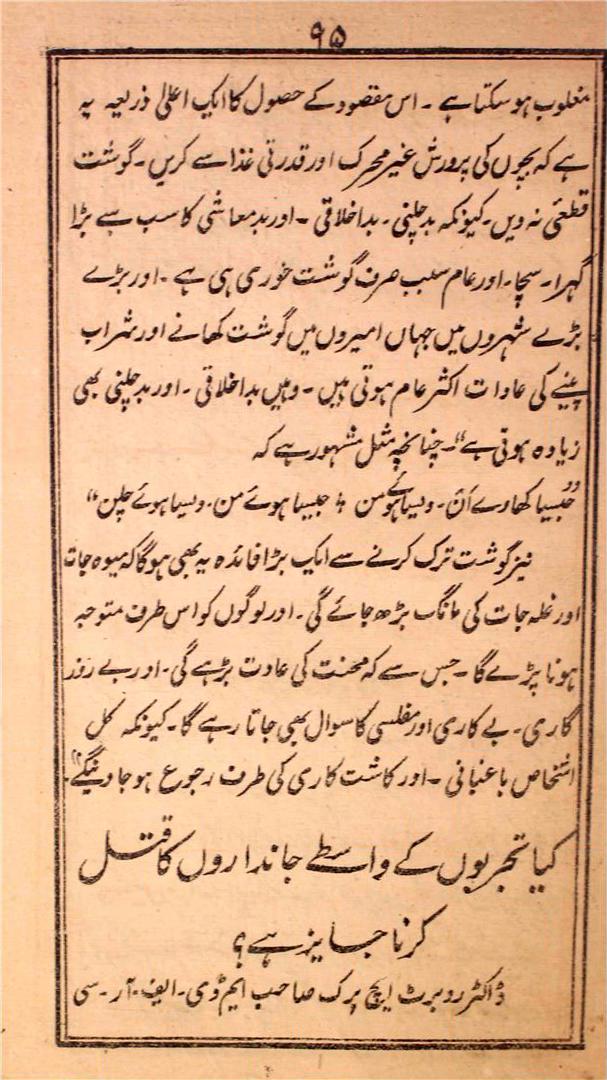 ۶۵
مغلوب ہوسکتا ہے ۔ اس مقصود کے حصول کا ایک اعلیٰ ذریعہ یہ
ہے کہ بچوں کی پرورش غیر محرک اور قدرتی غذا سے کریں ۔ گوشت
قطعئی نہ دیں ۔ کیونکہ بدچلنی ۔ بداخلاقی ۔ اور بدمعاشی کا سب سے بڑا
گہرا ۔ سچا ۔ اور عام سبب صرف گوشت خوری ہی ہے ۔ اور بڑے
بڑے شہروں میں جہاں امیروں میں گوشت کھانے اور شراب
پینے کی عادات اکثر عام ہوتی ہیں ۔ وہیں بداخلاقی ۔ اور بدچلنی بھی
زیادہ ہوتی ہے“۔ چنانچہ مثل مشہور ہے کہ
”جیسا کھاوے اَن ۔ ویسا ہوئے من ؛ جیسا ہوئے من ۔ ویسا ہوئے چلن“
نیز گوشت ترک کرنے سے ایک بڑا فائدہ یہ بھی ہوگا کہ میوہ جات
اور غلہ جات کی مانگ بڑھ جائے گی ۔ اور لوگوں کو اس طرف متوجہ
ہونا پڑے گا ۔ جس سے کہ محنت کی عادت بڑہے گی ۔ اور بے روز
گاری ۔ بے کاری اور مفلسی کا سوال بھی جاتا رہے گا ۔ کیونکہ کل
اشخاص باغبانی ۔ اور کاشت کاری کی طرف رجوع ہوجاوینگے“۔
کیا تجربوں کے واسطے جانداروں کا قتل
کرنا جایز ہے؟
ڈاکٹر روبرٹ ایچ پرک صاحب ایم ڈی ۔ ایف ۔ آر ۔ سی